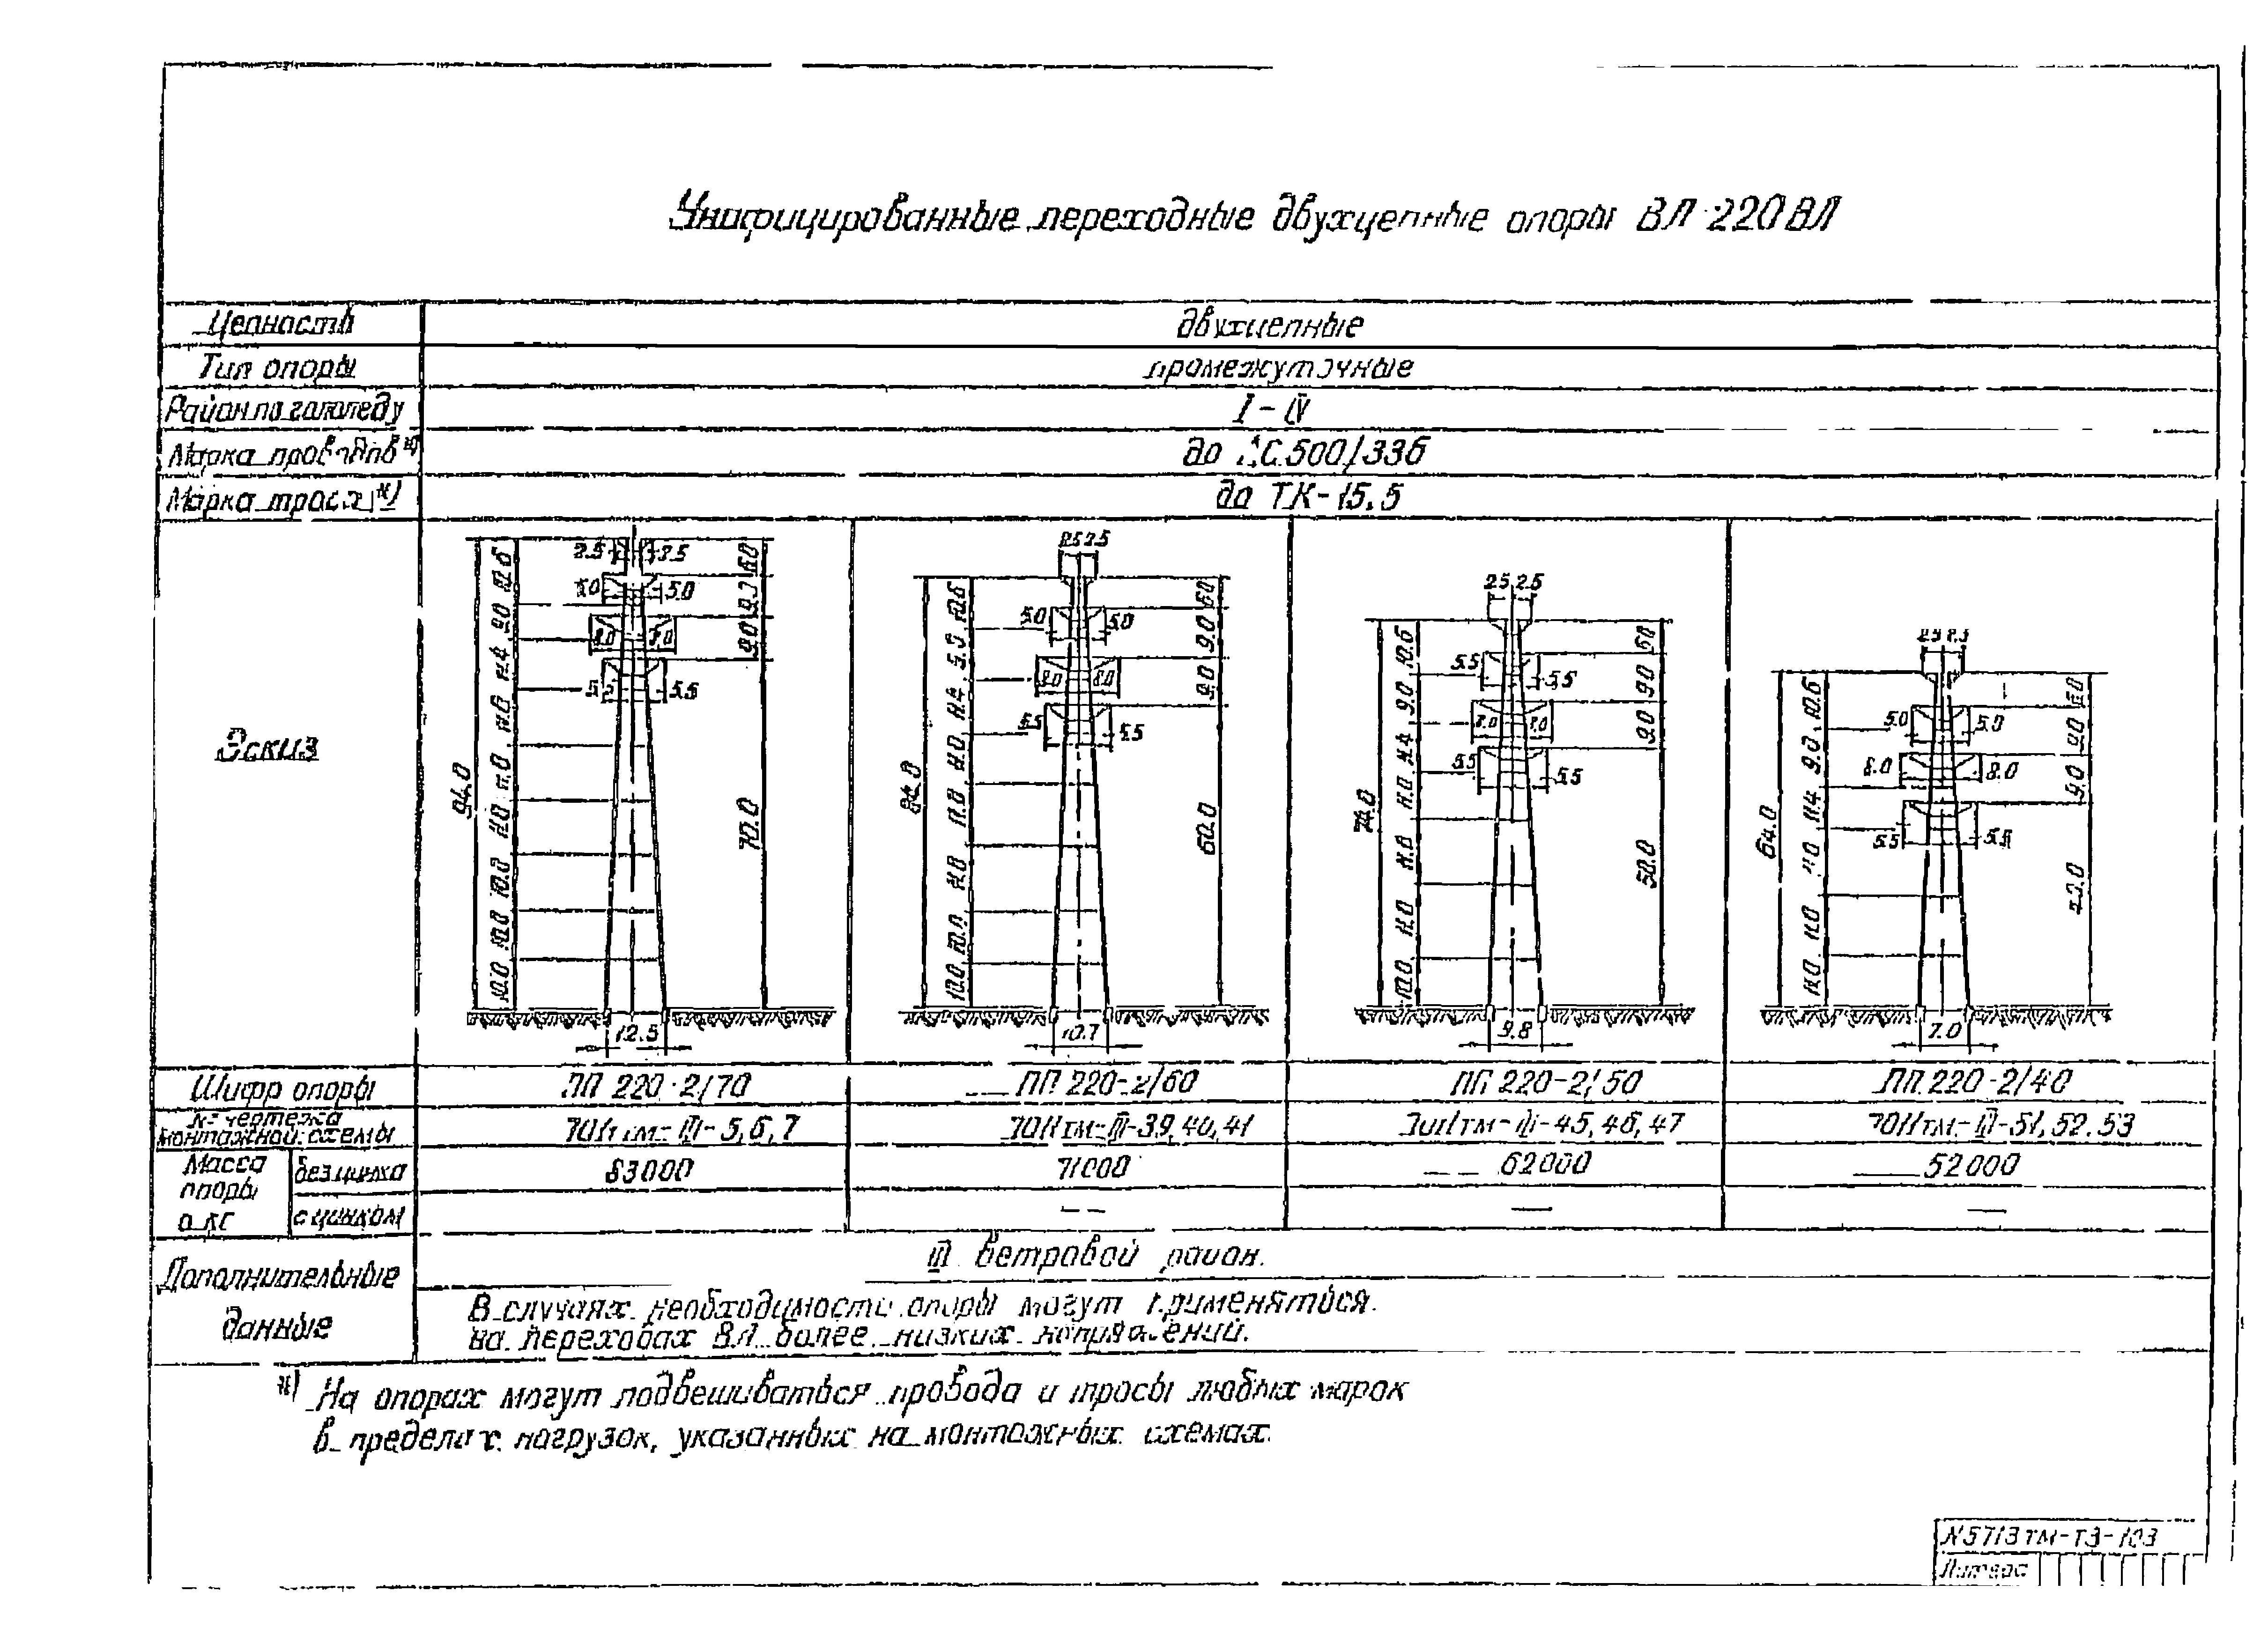 Унифицированные переходные двухцепные опоры ВЛ 220 ВЛ
Цепность двухцепные
Тип опоры промежуточные
Район по гололеду I-IV
Марка проводов ж) до АС 500/336
Марка троса ж) до ТК-15.5
Эскиз
2.5 2.5 5.0 5.0 8.0 8.0 5.5 5.5
10.6 9.0 11.4 11.0 11.0 11.0 10.0 10.0 10.0
94.0
6.0 9.0 9.0 70.0
12.5
2.5 2.5 5.0 5.0 8.0 8.0 5.5 5.5
10.6 9.0 11.4 11.0 11.0 11.0 10.0 10.0
84.0
6.0 9.0 9.0 60.0
10.7
2.5 2.5 5.5 5.5 8.0 8.0 5.5 5.5
10.6 9.0 11.4 11.0 11.0 11.0 10.0
74.0
6.0 9.0 9.0 50.0
9.8
2.5 2.5 5.0 5.0 8.0 8.0 5.5 5.5
10.6 9.0 11.4 11.0 11.0 11.0
64.0
6.0 9.0 9.0 40.0
7.0
Шифр опоры ПП 220-2/70 ПП 220-2/60 ПП 220-2/50 ПП 220-2/40
№ чертежа
монтажной схемы 7011тм-III-5,6,7 7011тм-III-39,40,41 7011тм-III-45,46,47 7011тм-III-51,52,53
Масса
опоры
в кг
без цинка 83000 71000 62000 52000
с цинком — — —
Дополнительные
данные
III ветровой район.
В случаях необходимости опоры могут применяться
на переходах ВЛ более низких напряжений.
ж) На опорах могут подвешиваться провода и тросы любых марок
в пределах нагрузок, указанных на монтажных схемах.
N 5713тм-Т3-103
Литера